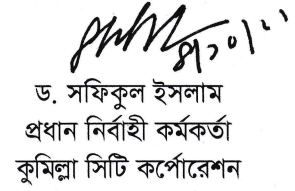 ড. সফিকুল ইসলাম
প্রধান নির্বাহী কর্মকর্তা
কুমিল্লা সিটি কর্পোরেশন